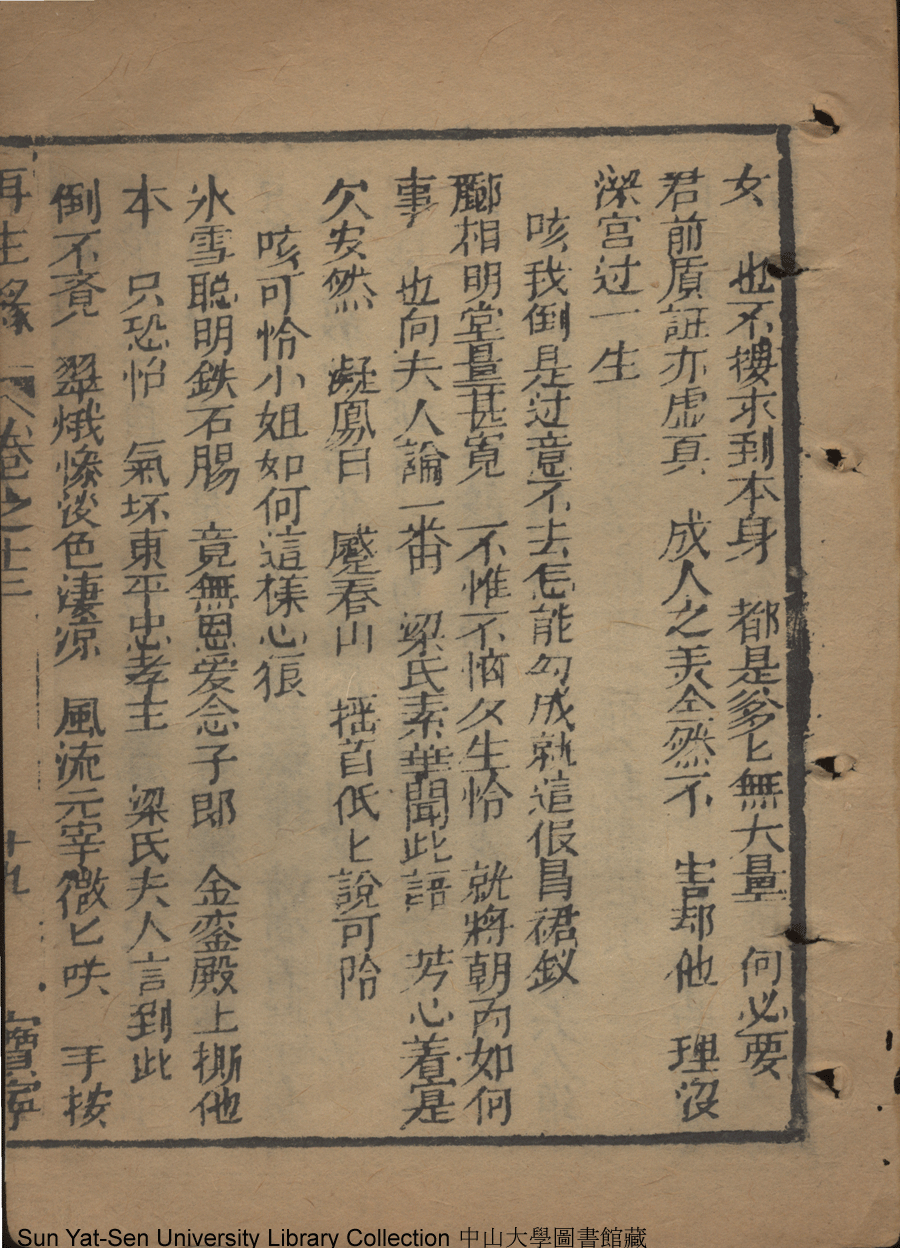 女　也不摟求到本身　都是爹匕無大量　何必要
君前质証亦虚真　成人之美全然不　害却他　理沒
深宫过一生
咳我倒是过意不去怎能勾成就這假冒裙釵
酈相明堂量甚寬　不惟不恼反生怜　就將朝内如何
事　也向夫人論一番　梁氏素華聞此語　芳心着实是
欠安然　凝鳳目　蹙春山　搖首低匕說可怜
咳可怜小姐如何這樣心狠
氷雪聪明鉄石腸　竟無恩爱念子郎　金銮殿上撕他
本　只恐怕　氣坏東平忠孝主　梁氏夫人言到此
倒不覺　翠娥慘淡色淒凉　風流元宰微匕咲　手按
再生緣　卷之十三　十九　寶寧
Sun Yat-Sen University Library Collection 中山大學圖書館藏